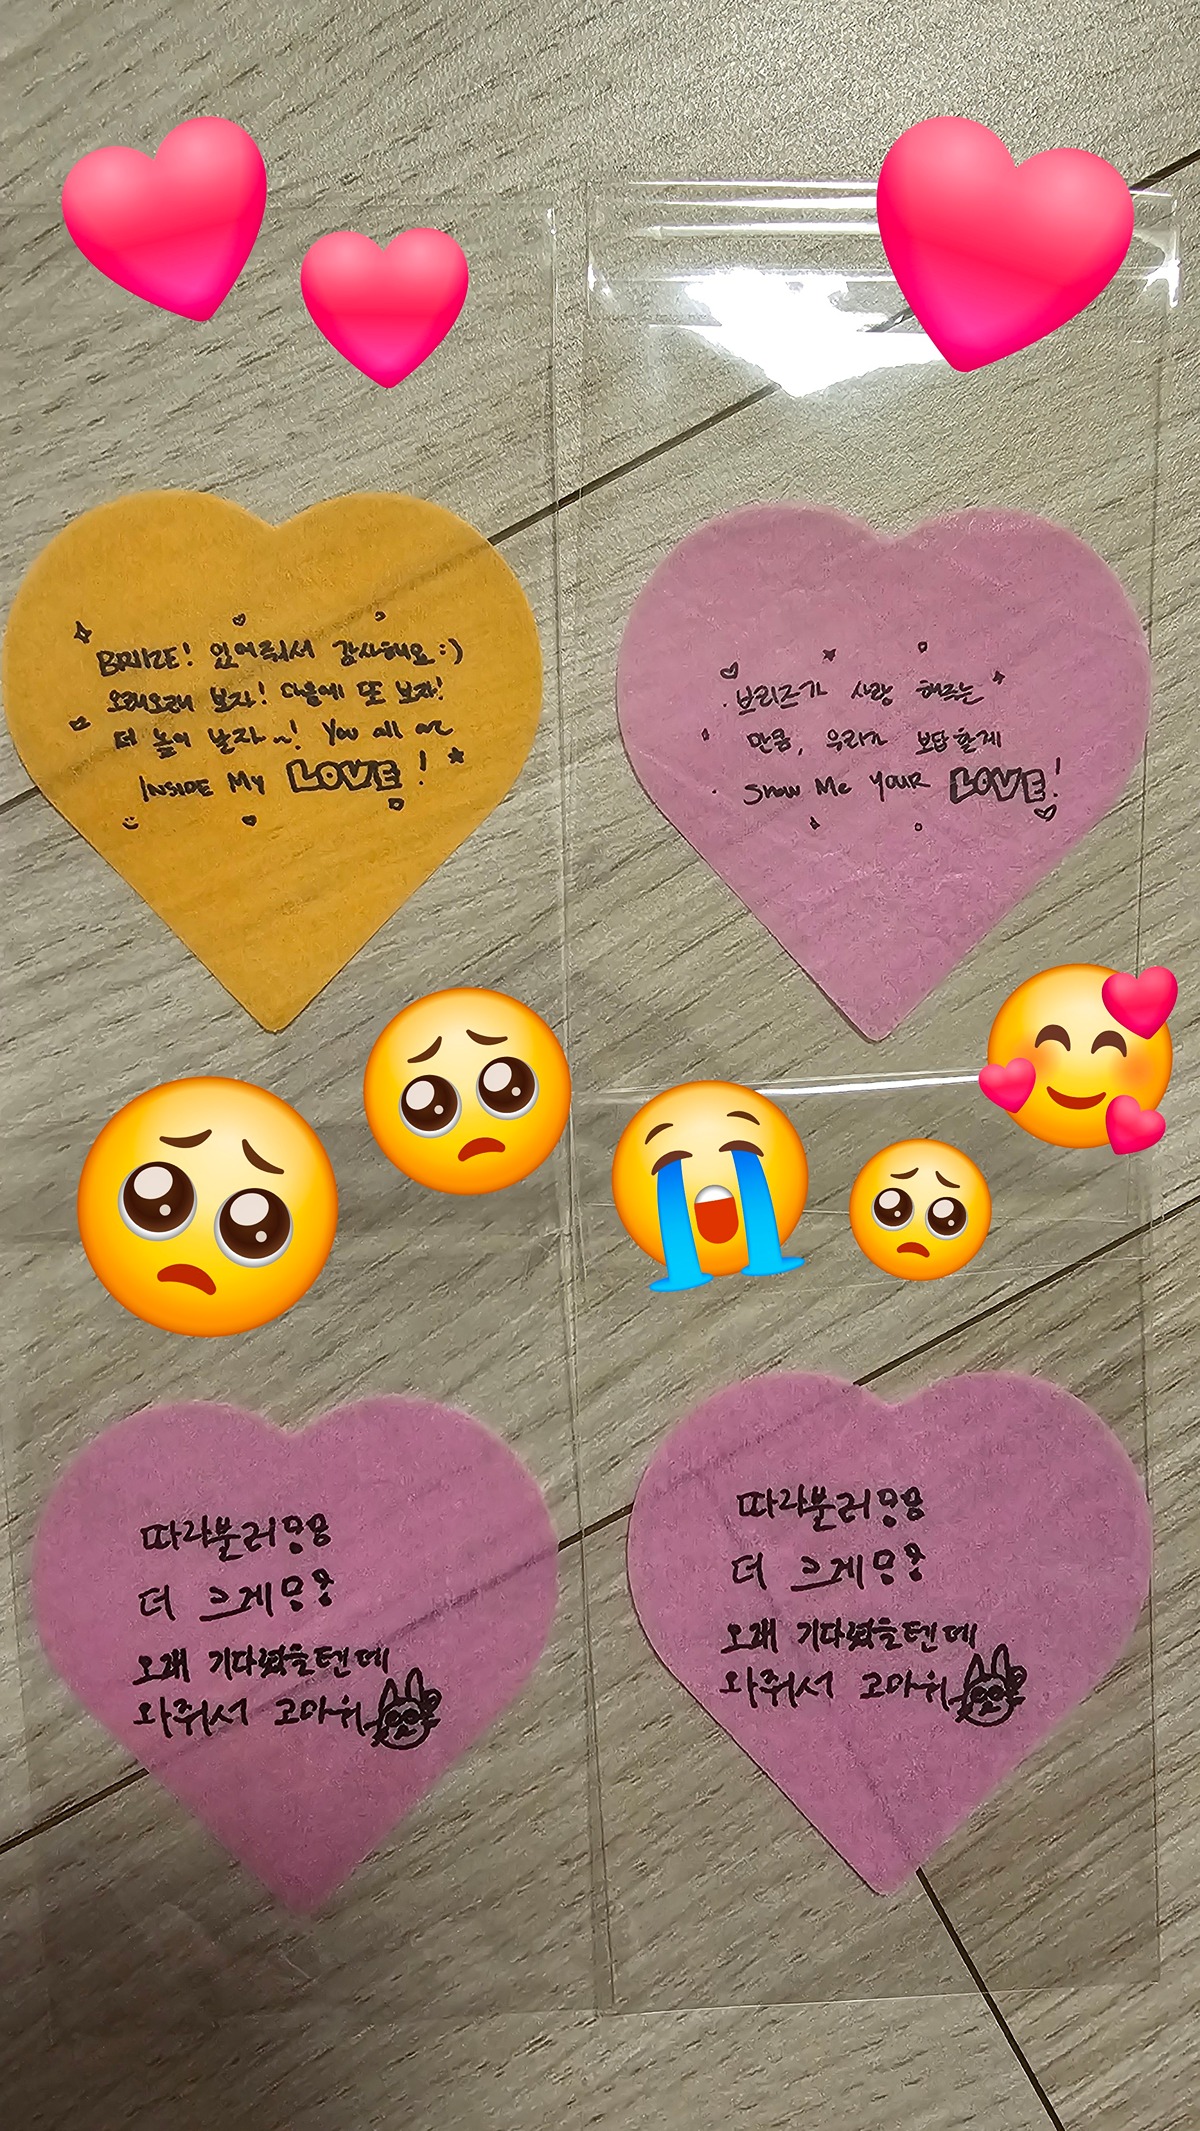 BRIIZE! 있어줘서 감사해요 :)
오래오래 보자! 다음에 또 보자!
더 높이 날자~! You all are
INSIDE My LOVE!
브리즈가 사랑 해주는
만큼, 우리가 보답할게
Show Me YOUR LOVE!
따라불러
더 크게
오래 기다렸을텐데
와줘서 고마워
따라불러
더 크게
오래 기다렸을텐데
와줘서 고마워